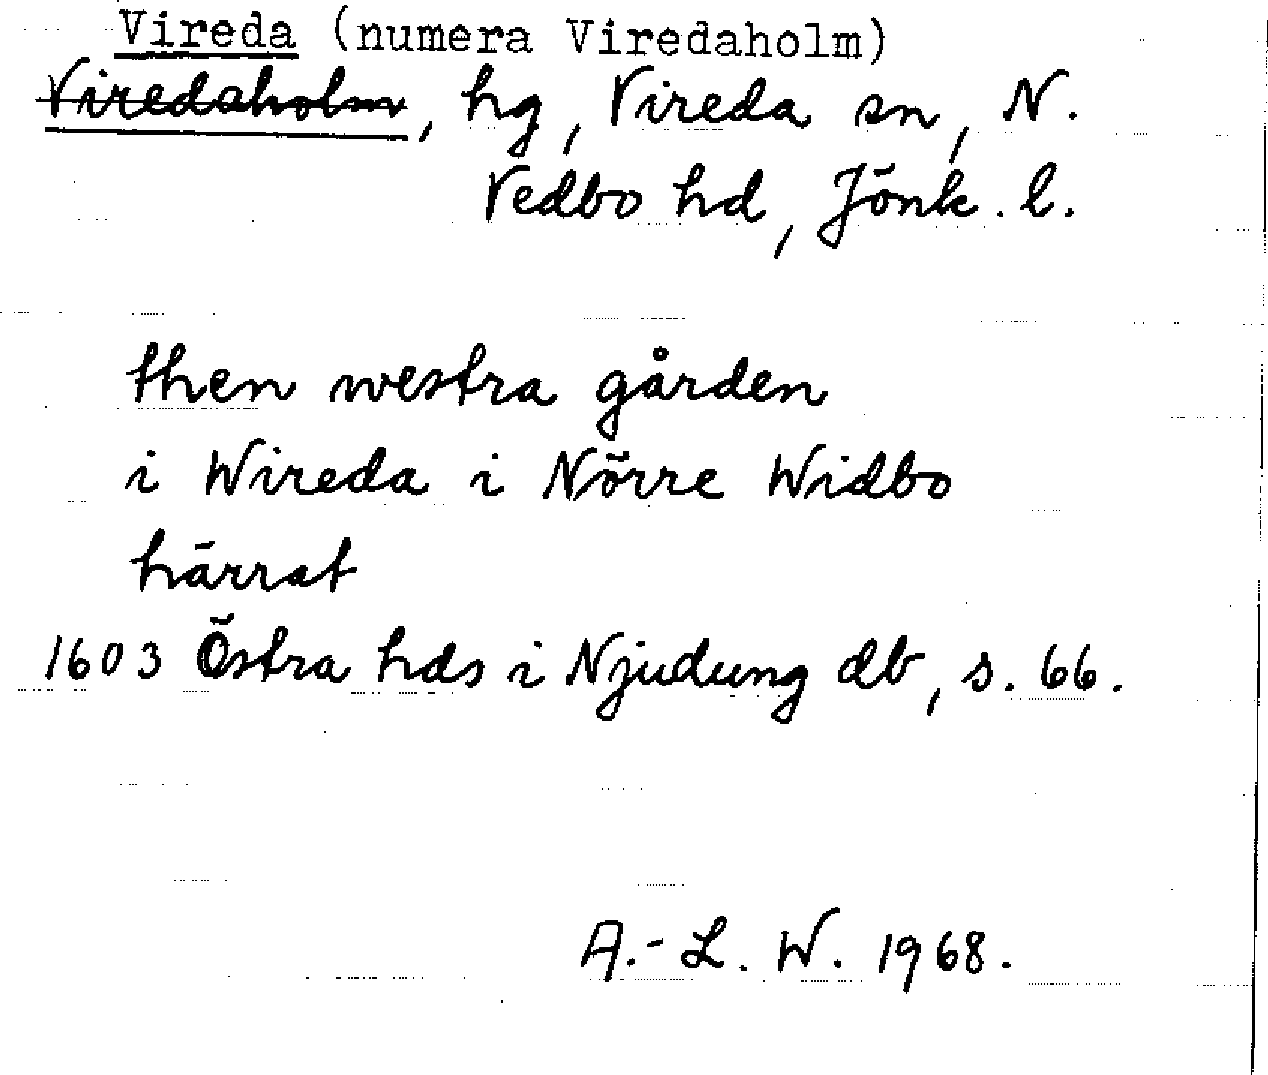 Vireda (numera Viredaholm)
Viredaholm, hg, Vireda sn, N.
Vedbo hd, Jönk. l.
then westra gården
i Wireda i Nörre Widbo
härrat
1603 Östra hds i Njudung db, s. 66.
A.-L. W. 1968.